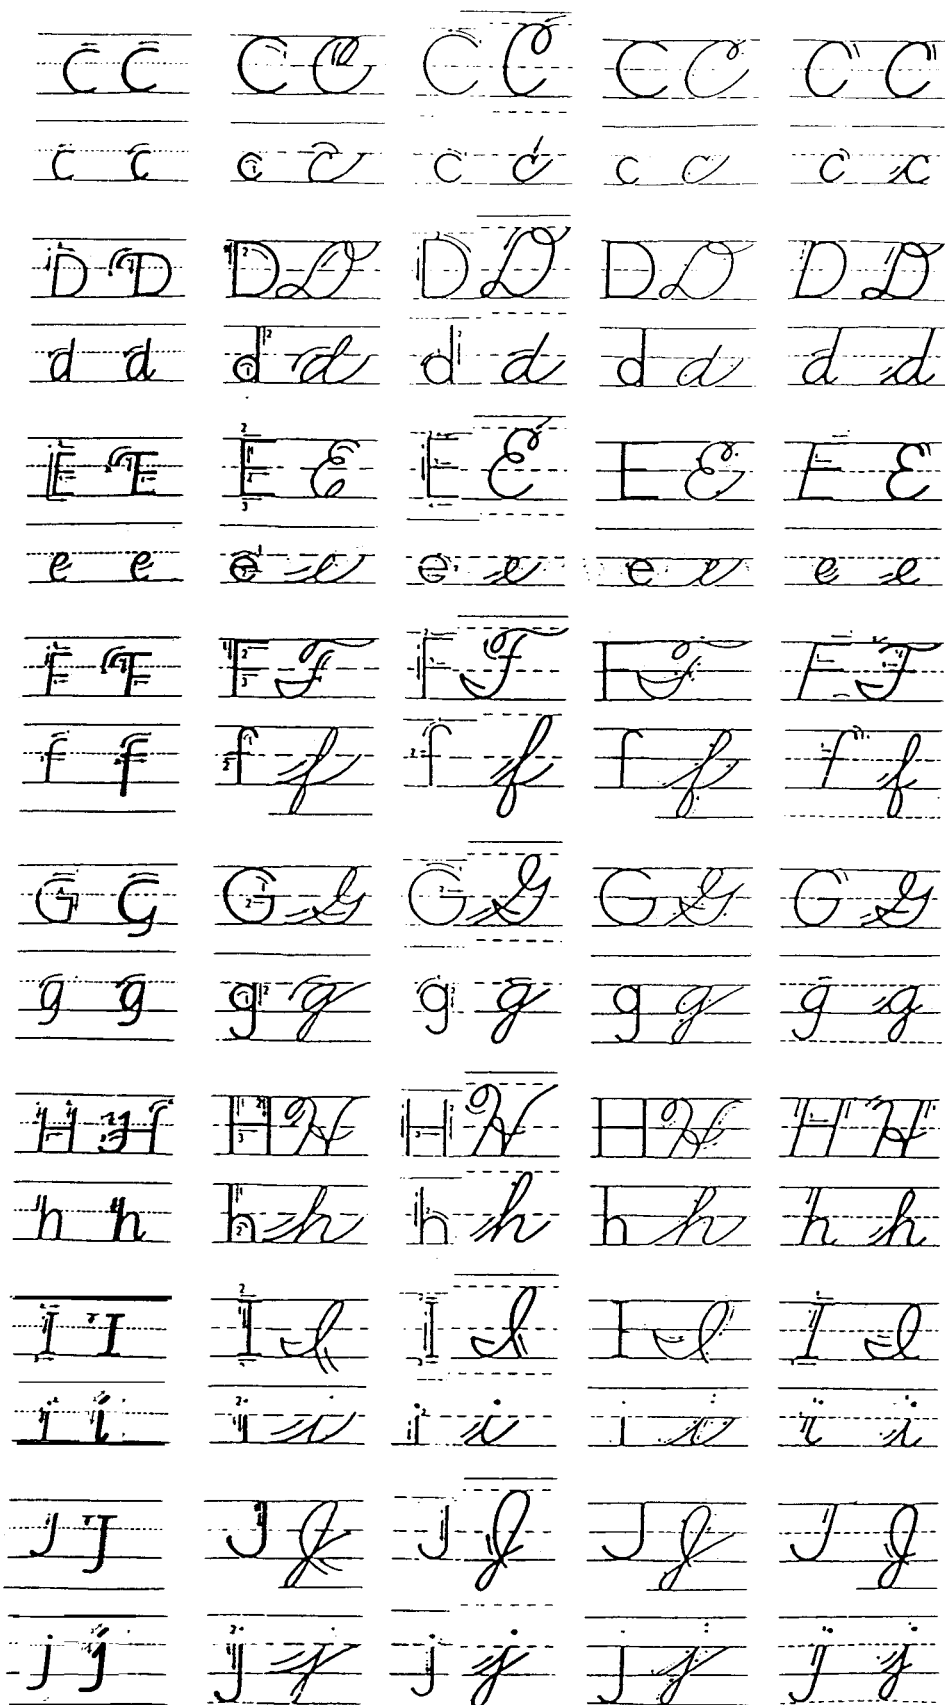 C C C C C C C C C C
c c c c c c c c c c
D D D D D D D D D D
d d d d d d d d d d
E E E E E E E E E E
e e e e e e e e e e
F F F F F F F F F F
f f f f f f f f f f
G G G G G G G G G G
g g g g g g g g g g
H H H H H H H H H H
h h h h h h h h h h
I I I I I I I I I I
i i i i i i i i i i
J J J J J J J J J J
j j j j j j j j j j